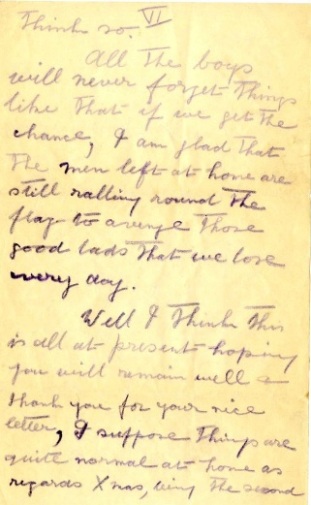 Think so. VI
All the boys
will never forget things
like that if we get the
chance, I am glad that
the men left at home are
still ralling round the
flag to avenge those
good lads that we lose
every day.
Well I think this
is all at present hoping
you will remain well &
thank you for your nice
letter, I suppose things are
quite normal at home as
regards Xmas, being the second